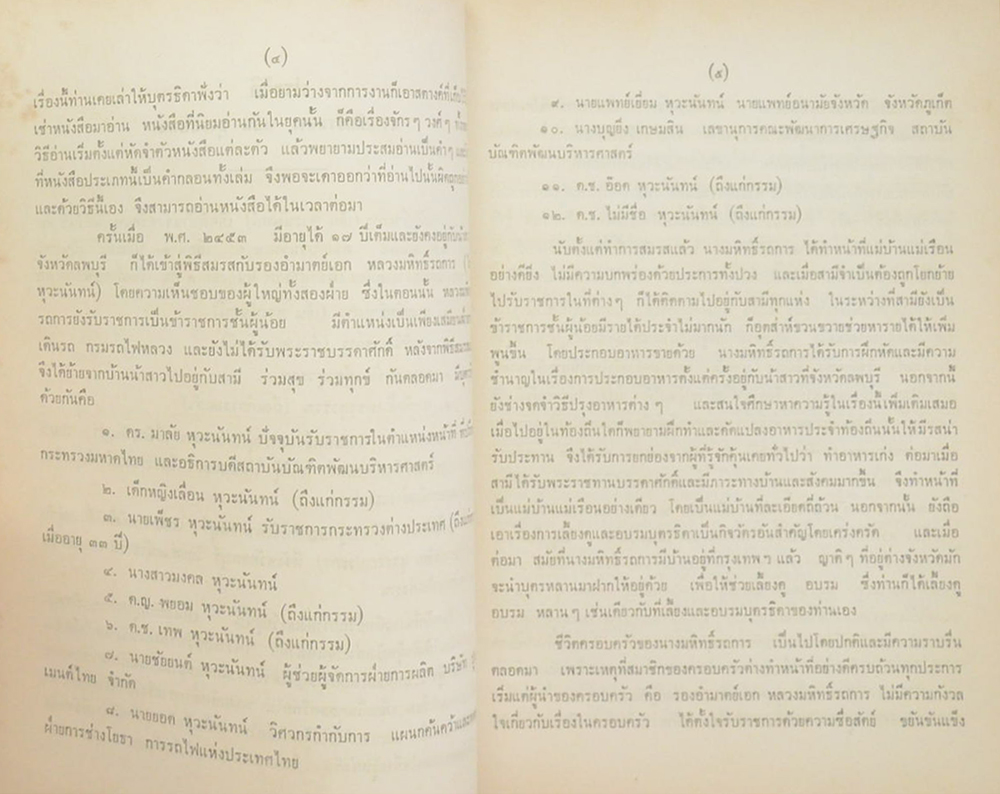 (๔)
เรื่องนี้ท่านเคยเล่าให้บุตรธิดาฟังว่า เมื่อยามว่างจากการงานก็เอาสตางค์ที่เก็บ
เช่าหนังสือมาอ่าน หนังสือที่นิยมอ่านกันในยุคนั้น ก็คือเรื่องจักรๆ วงค์ๆ
วิธีอ่านเริ่มตั้งแต่หัดจำตัวหนังสือแต่ละตัว แล้วพยายามประสมอ่านเป็นคำๆ
ที่หนังสือประเภทนี้เป็นคำกลอนทั้งเล่ม จึงพอจะเดาออกว่าที่อ่านไปนั้นผิดถูก
และด้วยวิธีนี้เอง จึงสามารถอ่านหนังสือได้ในเวลาต่อมา
ครั้นเมื่อ พ.ศ. ๒๔๕๓ มีอายุได้ ๑๗ ปีเต็มและยังคงอยู่กับ
จังหวัดลพบุรี ก็ได้เข้าสู่พิธีสมรสกับรองอำมาตย์เอก หลวงมหิทธิ์รถการ
หุวะนันทน์) โดยความเห็นชอบของผู้ใหญ่ทั้งสองฝ่าย ซึ่งในตอนนั้น
รถการยังรับราชการเป็นข้าราชการชั้นผู้น้อย มีตำแหน่งเป็นเพียงเสมียน
เดินรถ กรมรถไฟหลวง และยังไม่ได้รับพระราชบรรดาศักดิ์ หลังจากพิธี
จึงได้ย้ายจากบ้านน้าสาวไปอยู่กับสามี ร่วมสุข ร่วมทุกข์ กันตลอดมา
ด้วยกันคือ
๑. ดร. มาลัย หุวะนันทน์ ปัจจุบันรับราชการในตำแหน่งหน้าที่
กระทรวงมหาดไทย และอธิการบดีสถาบันบัณฑิตพัฒนบริหารศาสตร์
๒. เด็กหญิงเลื่อน หุวะนันทน์ (ถึงแก่กรรม)
๓. นายเพ็ชร หุวะนันทน์ รับราชการกระทรวงต่างประเทศ
เมื่ออายุ ๓๓ ปี)
๔. นางสาวมงคล หุวะนันทน์
๕. ด.ญ. พยอม หุวะนันทน์ (ถึงแก่กรรม)
๖. ด.ช. เทพ หุวะนันทน์ (ถึงแก่กรรม)
๗. นายชัยยนต์ หุวะนันทน์ ผู้ช่วยผู้จัดการฝ่ายการผลิต บริษัท
เมนต์ไทย จำกัด
๘. นายยอด หุวะนันทน์ วิศวกรกำกับการ แผนกค้นคว้า
ฝ่ายการช่างโยธา การรถไฟแห่งประเทศไทย
(๕)
๙. นายแพทย์เยี่ยม หุวะนันทน์ นายแพทย์อนามัยจังหวัด จังหวัดภูเก็ต
๑๐. นางบุญยิ่ง เกษมสิน เลขานุการคณะพัฒนาการเศรษฐกิจ สถาบัน
บัณฑิตพัฒนบริหารศาสตร์
๑๑. ด.ช. อ๊อด หุวะนันทน์ (ถึงแก่กรรม)
๑๒. ด.ช. ไม่มีชื่อ หุวะนันทน์ (ถึงแก่กรรม)
นับตั้งแต่ทำการสมรสแล้ว นางมหิทธิ์รถการ ได้ทำหน้าที่แม่บ้านแม่เรือน
อย่างดียิ่ง ไม่มีความบกพร่องด้วยประการทั้งปวง และเมื่อสามีจำเป็นต้องถูกโยกย้าย
ไปรับราชการในที่ต่างๆ ก็ได้ติดตามไปอยู่กับสามีทุกแห่ง ในระหว่างที่สามียังเป็น
ข้าราชการชั้นผู้น้อยมีรายได้ประจำไม่มากนัก ก็อุตส่าห์ขวนขวายช่วยหารายได้ให้เพิ่ม
พูนขึ้น โดยประกอบอาหารขายด้วย นางมหิทธิ์รถการได้รับการฝึกหัดและมีความ
ชำนาญในเรื่องการประกอบอาหารตั้งแต่ครั้งอยู่กับน้าสาวที่จังหวัดลพบุรี นอกจากนี้
ยังช่างจดจำวิธีปรุงอาหารต่างๆ และสนใจศึกษาหาความรู้ในเรื่องนี้เพิ่มเติมเสมอ
เมื่อไปอยู่ในท้องถิ่นใดก็พยายามฝึกทำและดัดแปลงอาหารประจำท้องถิ่นนั้นให้มีรสน่า
รับประทาน จึงได้รับการยกย่องจากผู้ที่รู้จักคุ้นเคยทั่วไปว่า ทำอาหารเก่ง ต่อมาเมื่อ
สามีได้รับพระราชทานบรรดาศักดิ์และมีภาระทางบ้านและสังคมมากขึ้น จึงทำหน้าที่
เป็นแม่บ้านแม่เรือนอย่างเดียว โดยเป็นแม่บ้านที่ละเอียดถี่ถ้วน นอกจากนั้น ยังถือ
เอาเรื่องการเลี้ยงดูและอบรมบุตรธิดาเป็นกิจวัตรอันสำคัญโดยเคร่งครัด และเมื่อ
ต่อมา สมัยที่นางมหิทธิ์รถการมีบ้านอยู่ที่กรุงเทพฯ แล้ว ญาติๆ ที่อยู่ต่างจังหวัดมัก
จะนำบุตรหลานมาฝากให้อยู่ด้วย เพื่อให้ช่วยเลี้ยงดู อบรม ซึ่งท่านก็ได้เลี้ยงดู
อบรม หลานๆ เช่นเดียวกับที่เลี้ยงและอบรมบุตรธิดาของท่านเอง
ชีวิตครอบครัวของนางมหิทธิ์รถการ เป็นไปโดยปกติและมีความราบรื่น
ตลอดมา เพราะเหตุที่สมาชิกของครอบครัวต่างทำหน้าที่อย่างดีครบถ้วนทุกประการ
เริ่มแต่ผู้นำของครอบครัว คือ รองอำมาตย์เอก หลวงมหิทธิ์รถการ ไม่มีความกังวล
ใจเกี่ยวกับเรื่องในครอบครัว ได้ตั้งใจรับราชการด้วยความซื่อสัตย์ ขยันขันแข็ง